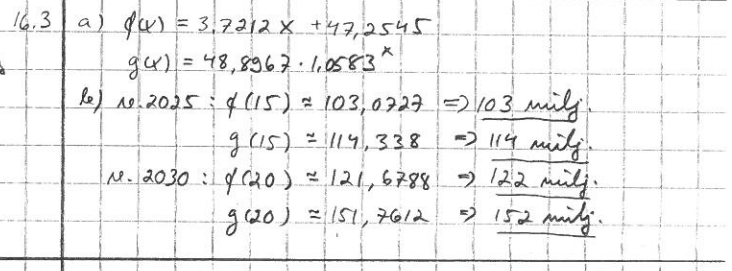 16.3 a) f(x) = 3,7212x + 47,2545
g(x) = 48,8967 · 1,0583^x
b) v. 2025 : f(15) ≈ 103,0727 => 103 milj.
g(15) ≈ 114,338 => 114 milj.
v. 2030 : f(20) ≈ 121,6788 => 122 milj.
g(20) ≈ 151,7612 => 152 milj.